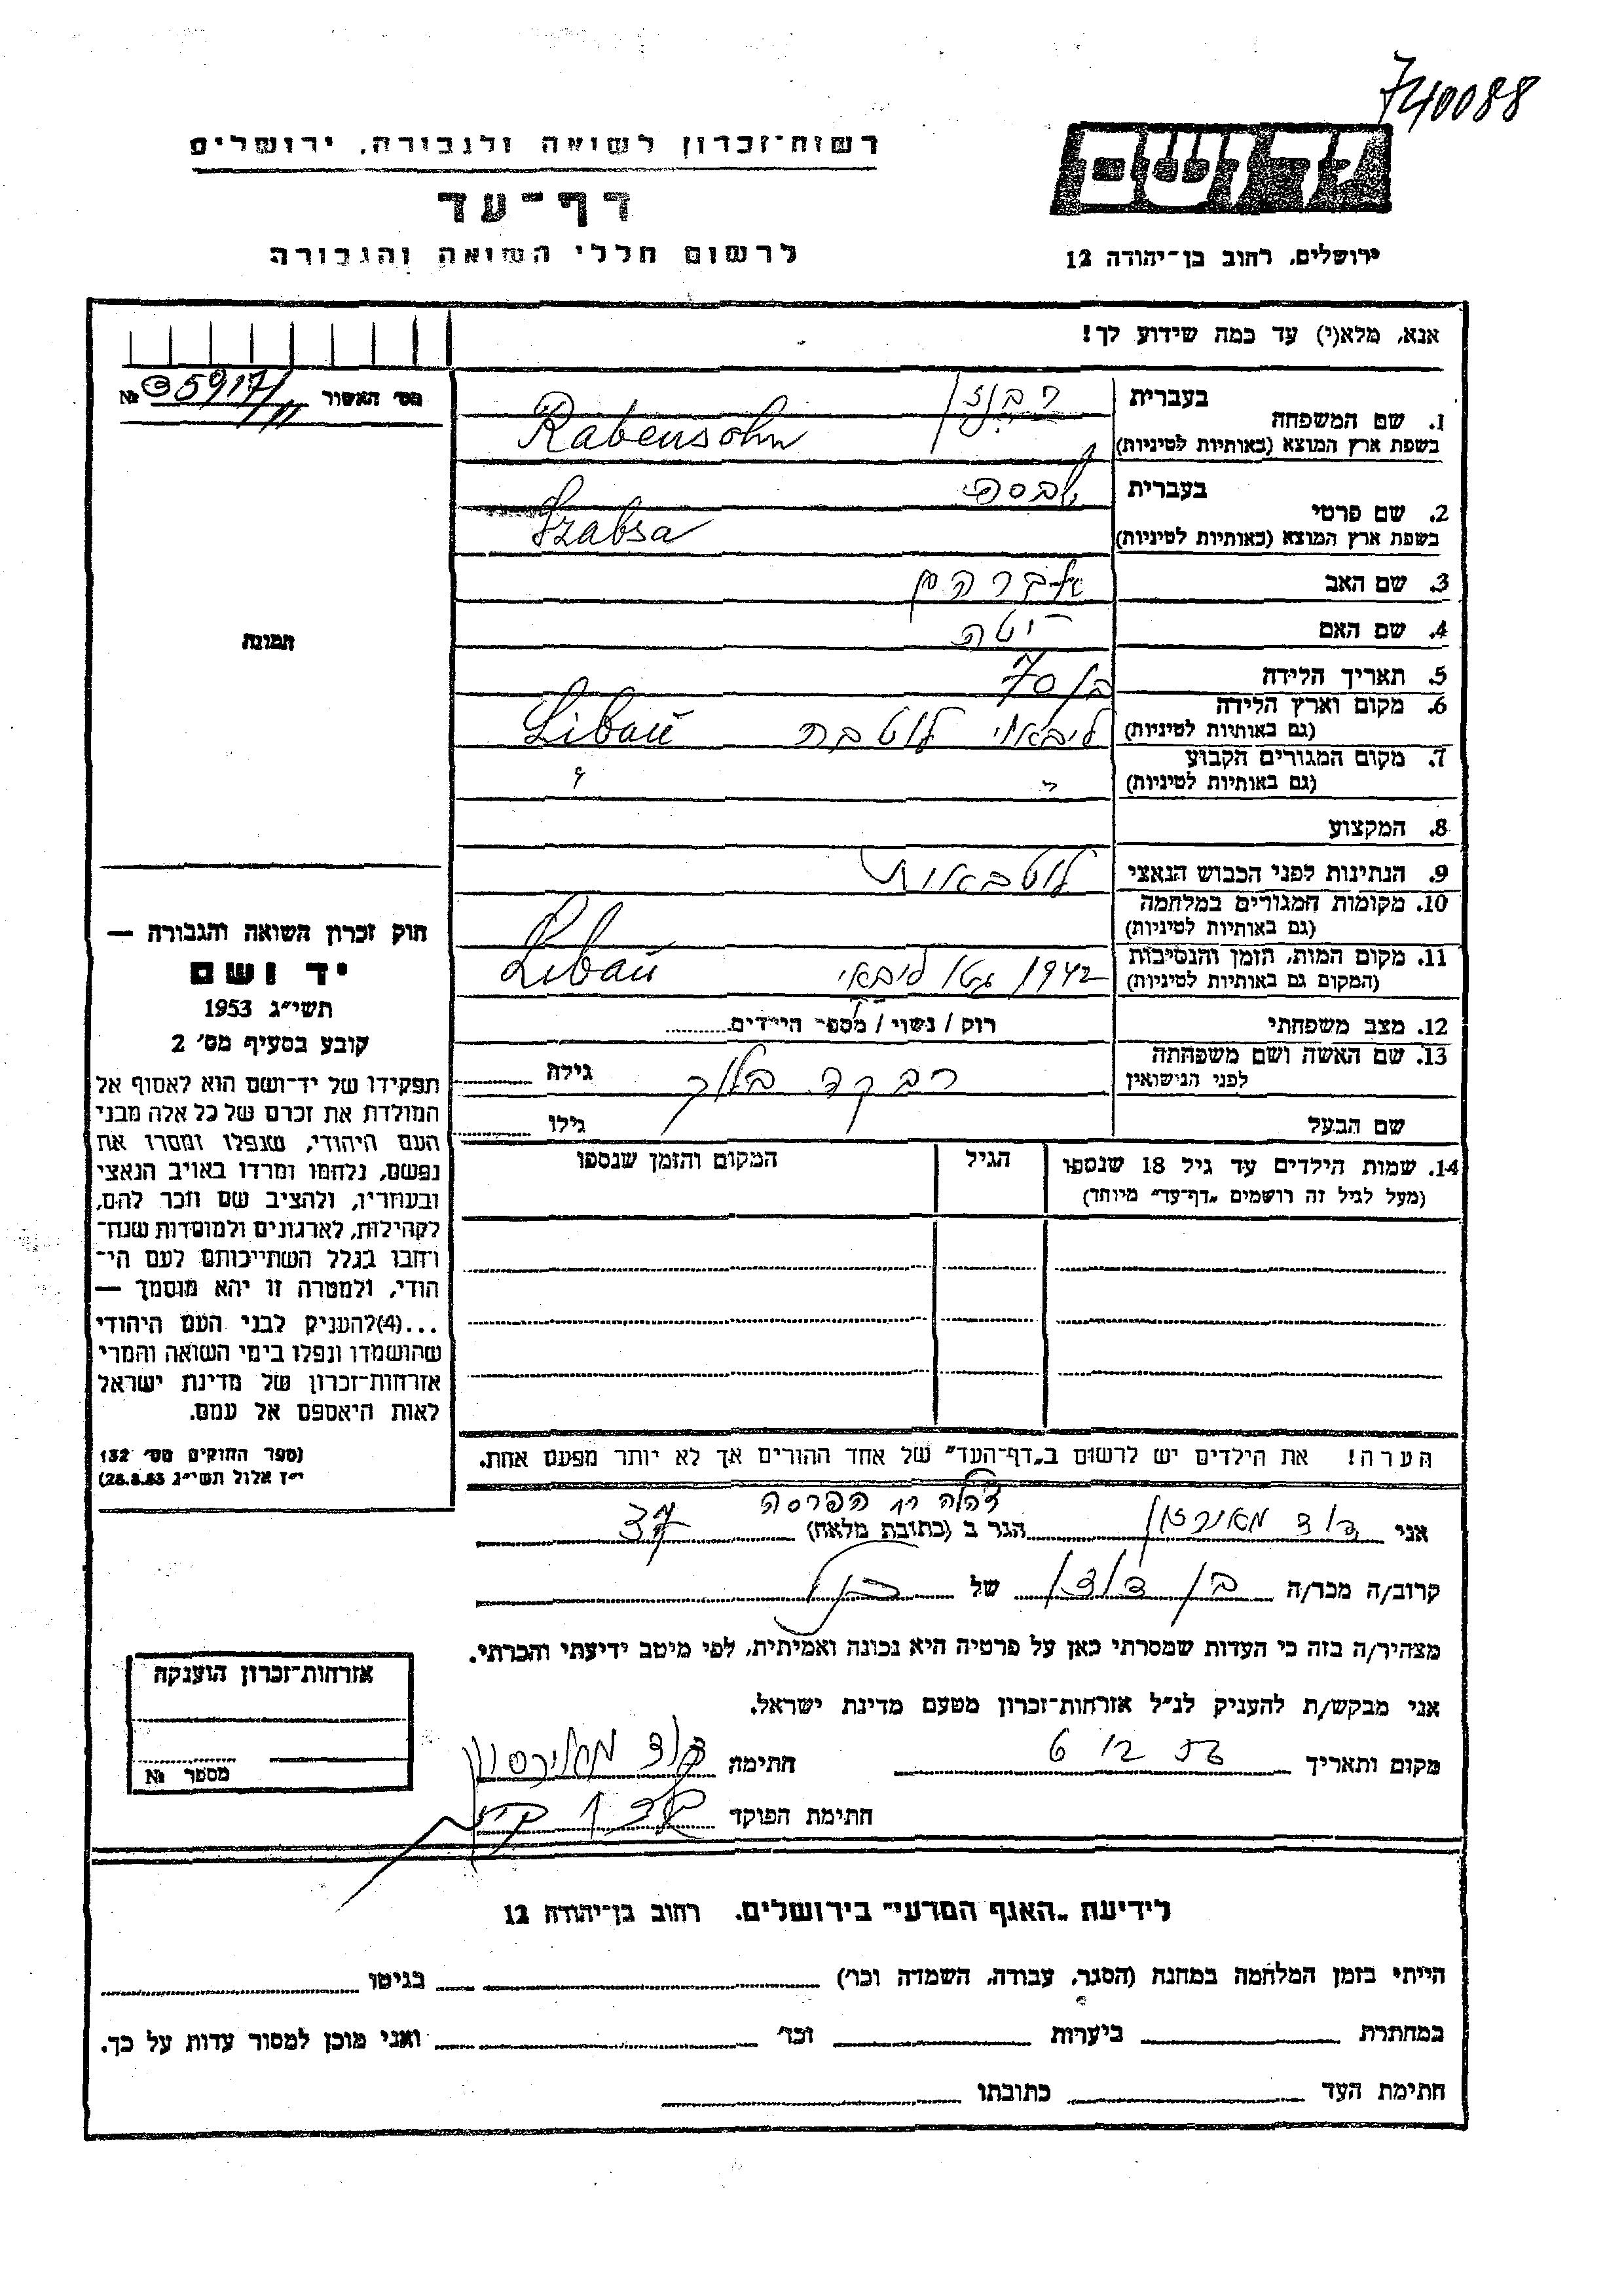 740088
יד ושם
ירושלים, רחוב בן־יהודה 12
רשות־זכרון לשואה ולגבורה, ירושלים
דף־עד
לרשום חללי השואה והגבורה
אנא, מלא(י) עד כמה שידוע לך!
מס׳ האשור №
1. שם המשפחה
בעברית
בשפת ארץ המוצא (באותיות לטיניות)
Rabensohn
2. שם פרטי
בעברית
בשפת ארץ המוצא (באותיות לטיניות)
Szabsa
3. שם האב אברהם
4. שם האם יטה
5. תאריך הלידה בן 70
6. מקום וארץ הלידה
(גם באותיות לטיניות)
ליבאוי לטביה Libau
7. מקום המגורים הקבוע
(גם באותיות לטיניות)
״ ״
8. המקצוע
9. הנתינות לפני הכבוש הנאצי
10. מקומות המגורים במלחמה
(גם באותיות לטיניות)
11. מקום המות, הזמן והנסיבות
(המקום גם באותיות לטיניות)
1942 גטו ליבאוי Libau
12. מצב משפחתי רוק / נשוי / מספר הילדים
13. שם האשה ושם משפחתה
לפני הנישואין
רבקה בלוך גילה
שם הבעל גילו
14. שמות הילדים עד גיל 18 שנספו הגיל המקום והזמן שנספו
(מעל לגיל זה רושמים „דף־עד״ מיוחד)
הערה! את הילדים יש לרשום ב„דף־העד״ של אחד ההורים אך לא יותר מפעם אחת.
אני דוד מאירסון הגר ב (כתובת מלאה)
קרוב/ה מכר/ה בן דודן של הנ״ל
מצהיר/ה בזה כי העדות שמסרתי כאן על פרטיה היא נכונה ואמיתית, לפי מיטב ידיעתי והכרתי.
אני מבקש/ת להעניק לנ״ל אזרחות־זכרון מטעם מדינת ישראל.
מקום ותאריך 6 12 חתימה דוד מאירסון
חתימת הפוקד
תמונה
חוק זכרון השואה והגבורה —
יד ושם
תשי״ג 1953
קובע בסעיף מס׳ 2
תפקידו של יד־ושם הוא לאסוף אל
המולדת את זכרם של כל אלה מבני
העם היהודי, שנפלו ומסרו את
נפשם, נלחמו ומרדו באויב הנאצי
ובעוזריו, ולהציב שם וזכר להם,
לקהילות, לארגונים ולמוסדות שנח־
רחבו בגלל השתייכותם לעם הי־
הודי, ולמטרה זו יהא מוסמך —
...(4)להעניק לבני העם היהודי
שהושמדו ונפלו בימי השואה והמרי
אזרחות־זכרון של מדינת ישראל
לאות היאספם אל עמם.
(ספר החוקים מס׳ 132
י״ז אלול תשי״ג 28.8.53)
אזרחות־זכרון הוענקה
מספר №
לידיעת „האגף המדעי״ בירושלים, רחוב בן־יהודה 12
הייתי בזמן המלחמה במחנה (הסגר, עבודה, השמדה וכו׳) בגיטו
במחתרת ביערות וכו׳ ואני מוכן למסור עדות על כך.
חתימת העד כתובתו